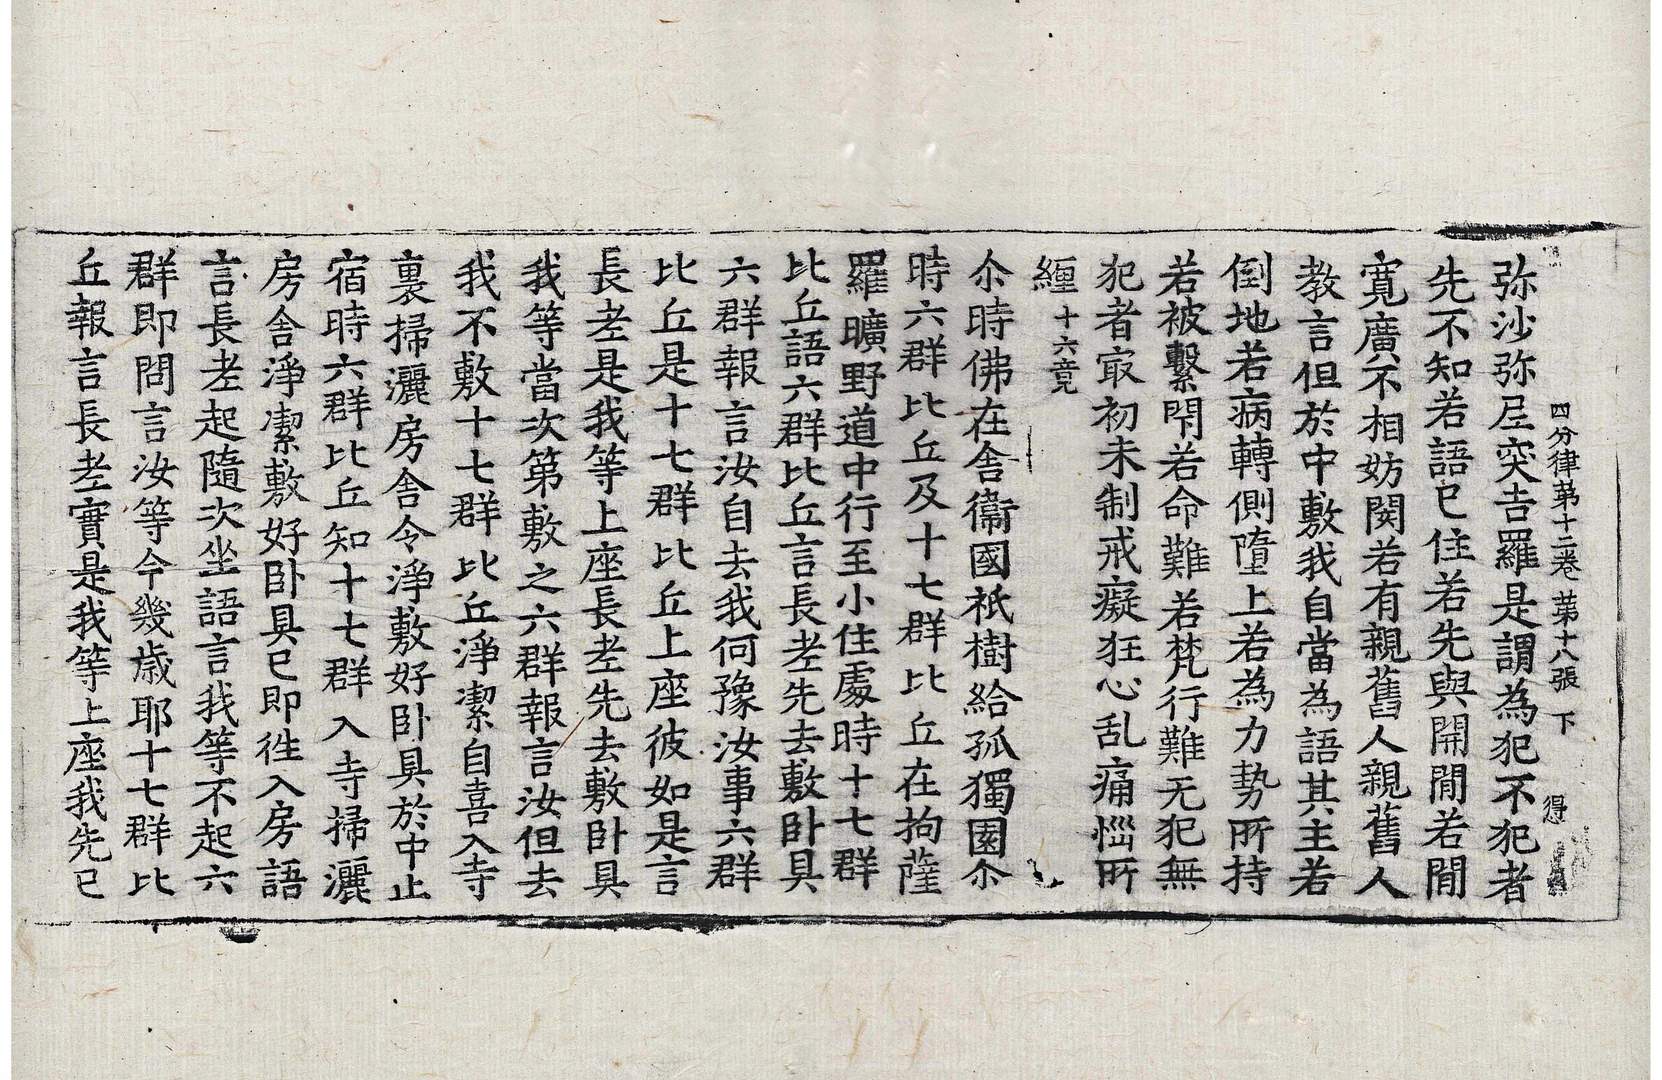 四分律苐十二卷 苐十八張 下 得
弥沙弥尼突吉羅是謂為犯不犯者
先不知若語已住若先與開閒若閒
寬廣不相妨閡若有親舊人親舊人
教言但於中敷我自當為語其主若
倒地若病轉側墮上若為力勢所持
若被繫閇若命難若梵行難无犯無
犯者冣初未制戒癡狂心乱痛惱所
纏 十六竟
尒時佛在舍衞國祇樹給孤獨園尒
時六群比丘及十七群比丘在拘薩
羅曠野道中行至小住處時十七群
比丘語六群比丘言長老先去敷卧具
六群報言汝自去我何豫汝事六群
比丘是十七群比丘上座彼如是言
長老是我等上座長老先去敷卧具
我等當次第敷之六群報言汝但去
我不敷十七群比丘淨潔自喜入寺
裏掃灑房舍令淨敷好卧具於中止
宿時六群比丘知十七群入寺掃灑
房舍淨潔敷好卧具已即徃入房語
言長老起隨次坐語言我等不起六
群即問言汝等今幾歲耶十七群比
丘報言長老實是我等上座我先已